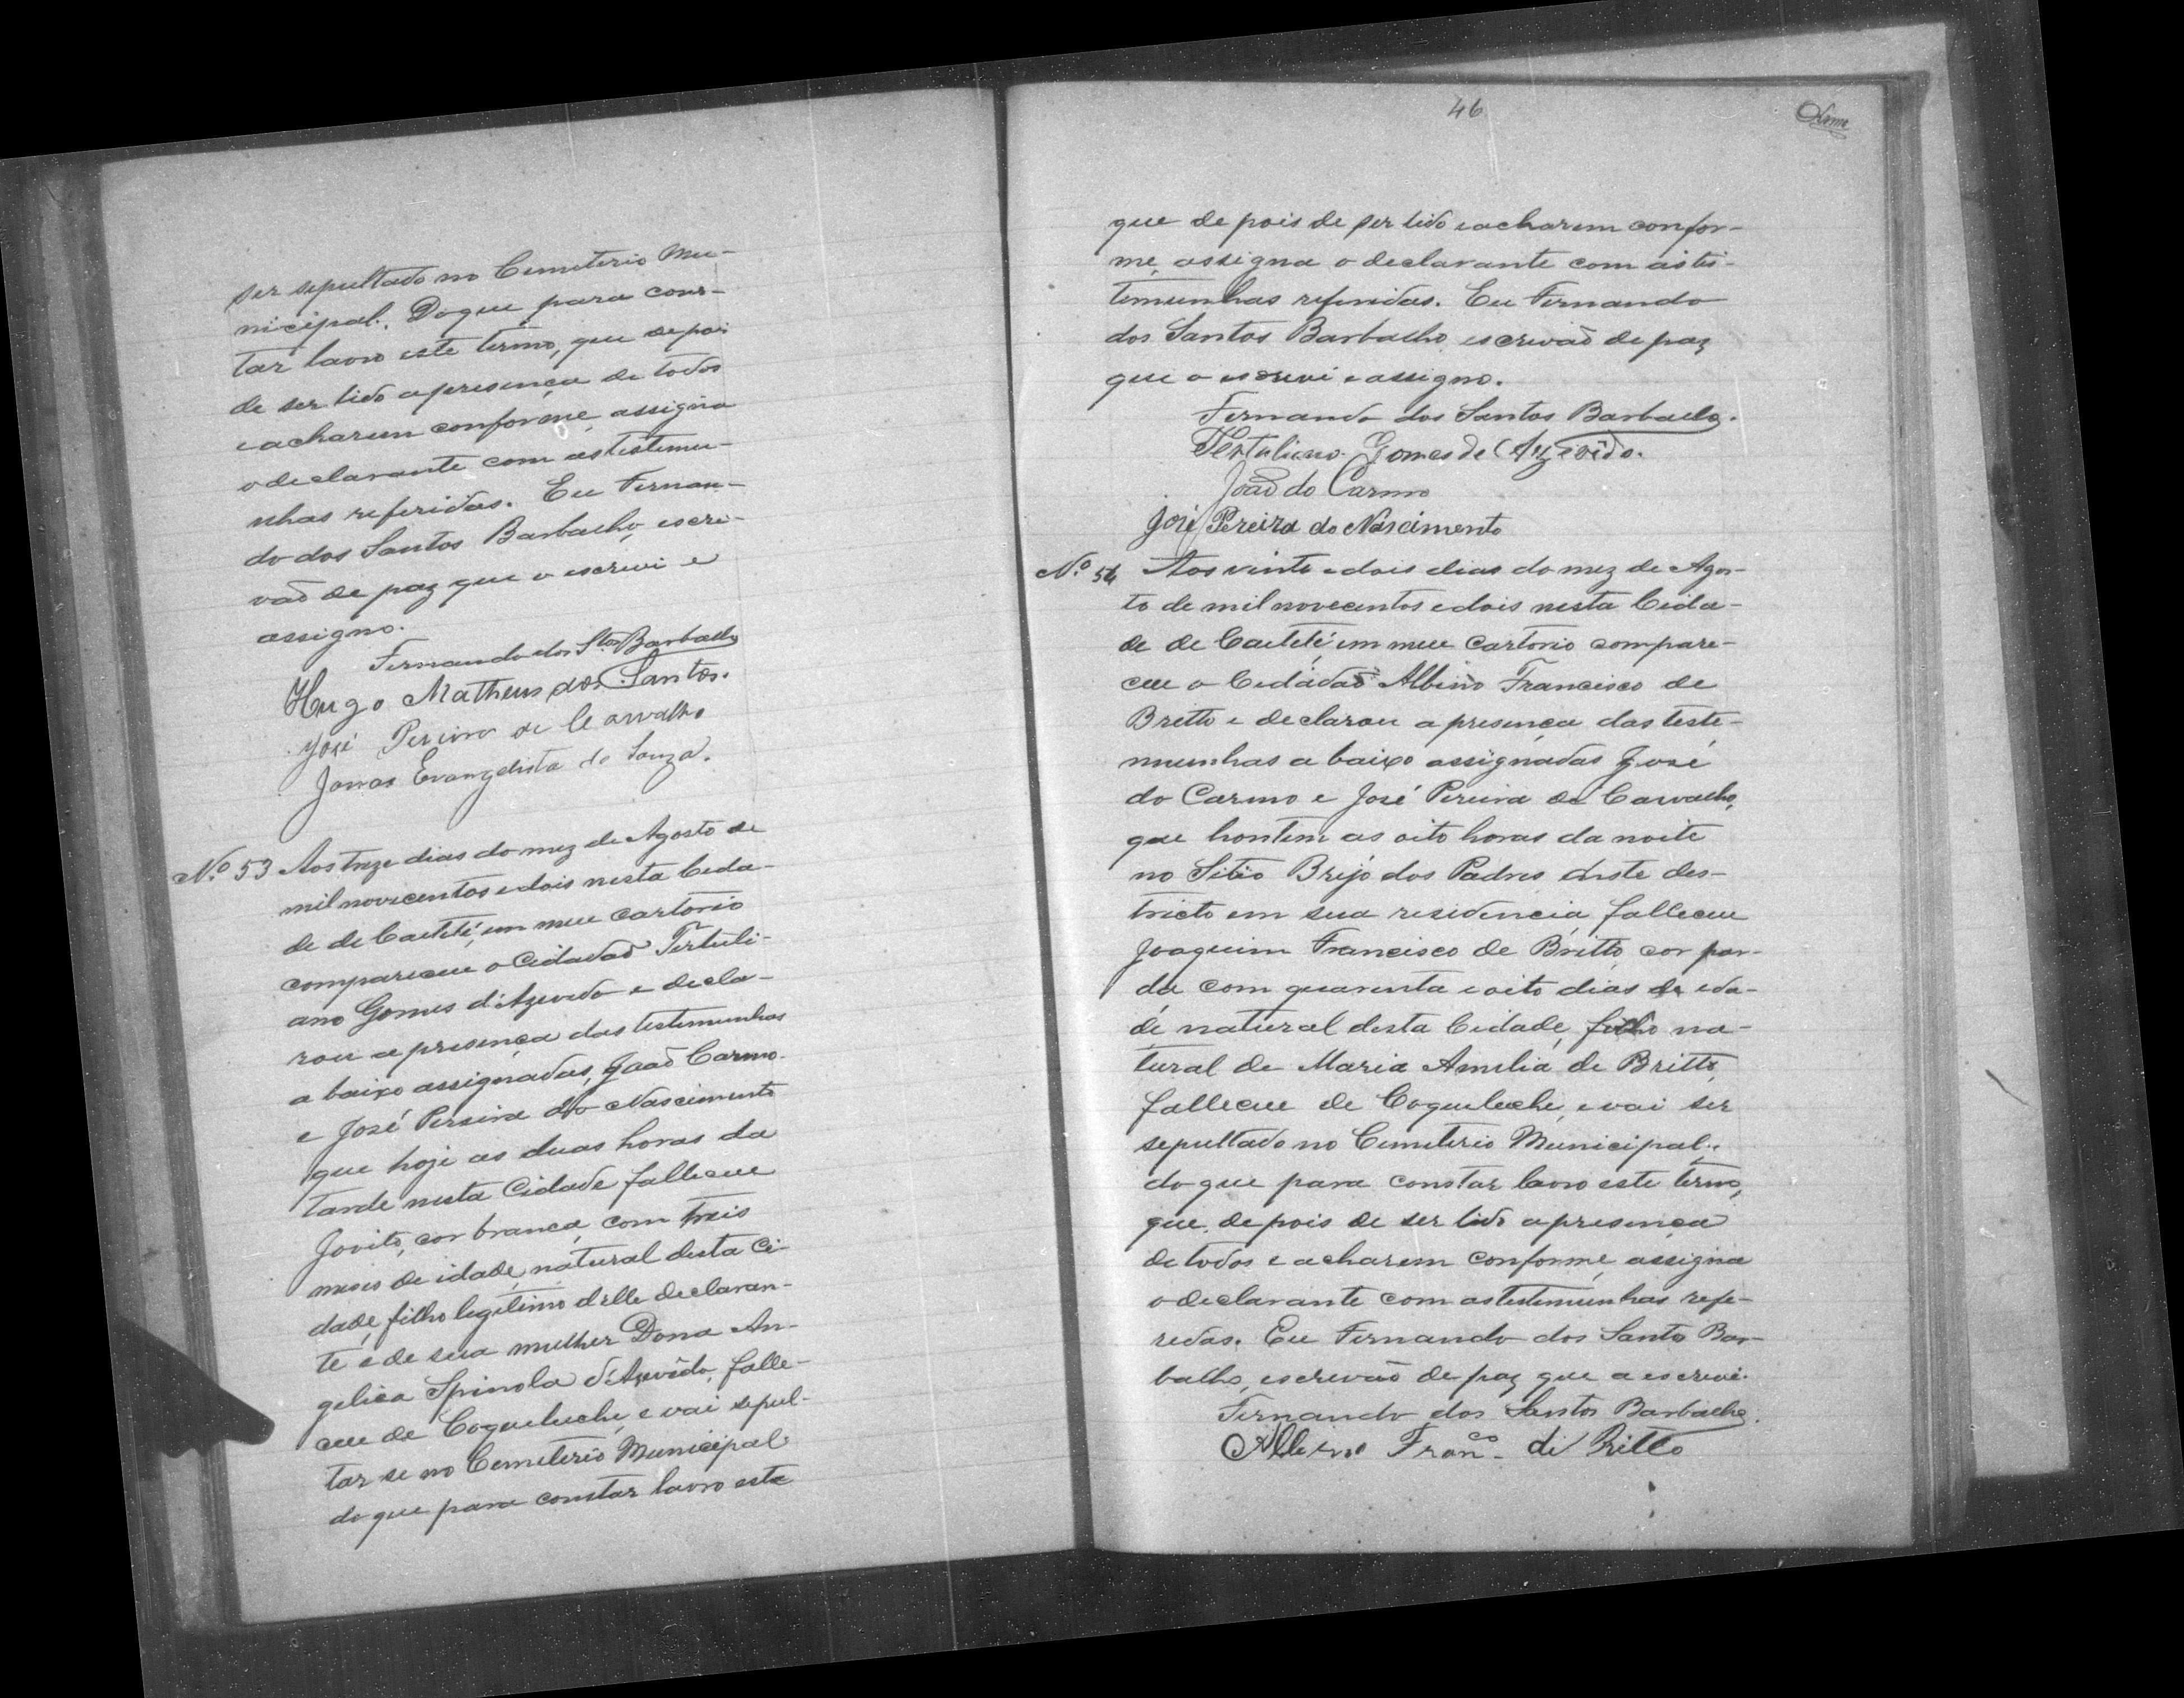 ser sepultado no Cemiterio Mu-
nicipal. Do que para cons-
tar lavro este termo, que depois
de ser lido a presença de todos
e acharem conforme, assigna
o declarante com as testemu-
nhas referidas. Eu Fernan-
do dos Santos Barbalho, escri-
vaõ de paz que o escrevi e
assigno.
Fernando dos Stos Barbalho
Hugo Matheus dos Santos.
José Pereira de Carvalho
Jonas Evangelista de Souza.
Nº 53 Aos treze dias do mez de Agosto de
mil novecentos e dois nesta Cida-
de de Caeteté, em meu cartorio
compareceu o Cidadaõ Tertuli-
ano Gomes d'Azevedo e decla-
rou a presença das testemunhas
a baixo assignadas, Joaõ Carmo
e José Pereira do Nascimento
que hoje as duas horas da
tarde nesta Cidade falleceu
Jovito, cor branca, com treis
meses de idade, natural desta Ci-
dade, filho legitimo delle declaran-
te e de sua mulher Dona An-
gelica Spinola d'Azevêdo, falle-
ceu de Coqueluche, e vai sepul-
tar se no Cemiterio Municipal
do que para constar lavro este
46
que de pois de ser lido e acharem confor-
me, assigna o declarante com as tes-
temunhas referidas. Eu Fernando
dos Santos Barbalho escrivaõ de paz
que o escrevi e assigno.
Fernando dos Santos Barbalho.
Tertuliano Gomes de Azevêdo.
Joaõ do Carmo
José Pereira do Nascimento
Nº 54 Aos vinte e dois dias do mez de Agos-
to de mil novecentos e dois nesta Cida-
de de Caeteté, em meu cartorio compare-
ceu o Cidadaõ Albino Francisco de
Britto e declarou a presença das teste-
munhas a baixo assignadas José
do Carmo e José Pereira de Carvalho,
que hontem as oito horas da noite
no Sitio Brejo dos Padres deste des-
tricto em sua residencia, falleceu
Joaquim Francisco de Britto, cor par-
da com quarenta e oito dias de eda-
de, natural desta Cidade, filho na-
tural de Maria Amelia de Britto,
falleceu de Coqueluche, e vai ser
sepultado no Cemiterio Municipal.
do que para constar lavro este termo,
que de pois de ser lido a presença
de todos e acharem conforme, assigna
o declarante com as testemunhas refe-
redas. Eu Fernando dos Santos Bar-
balho, escrevaõ de paz que a escrevi.
Fernando dos Santos Barbalho.
Albino Franco de Britto